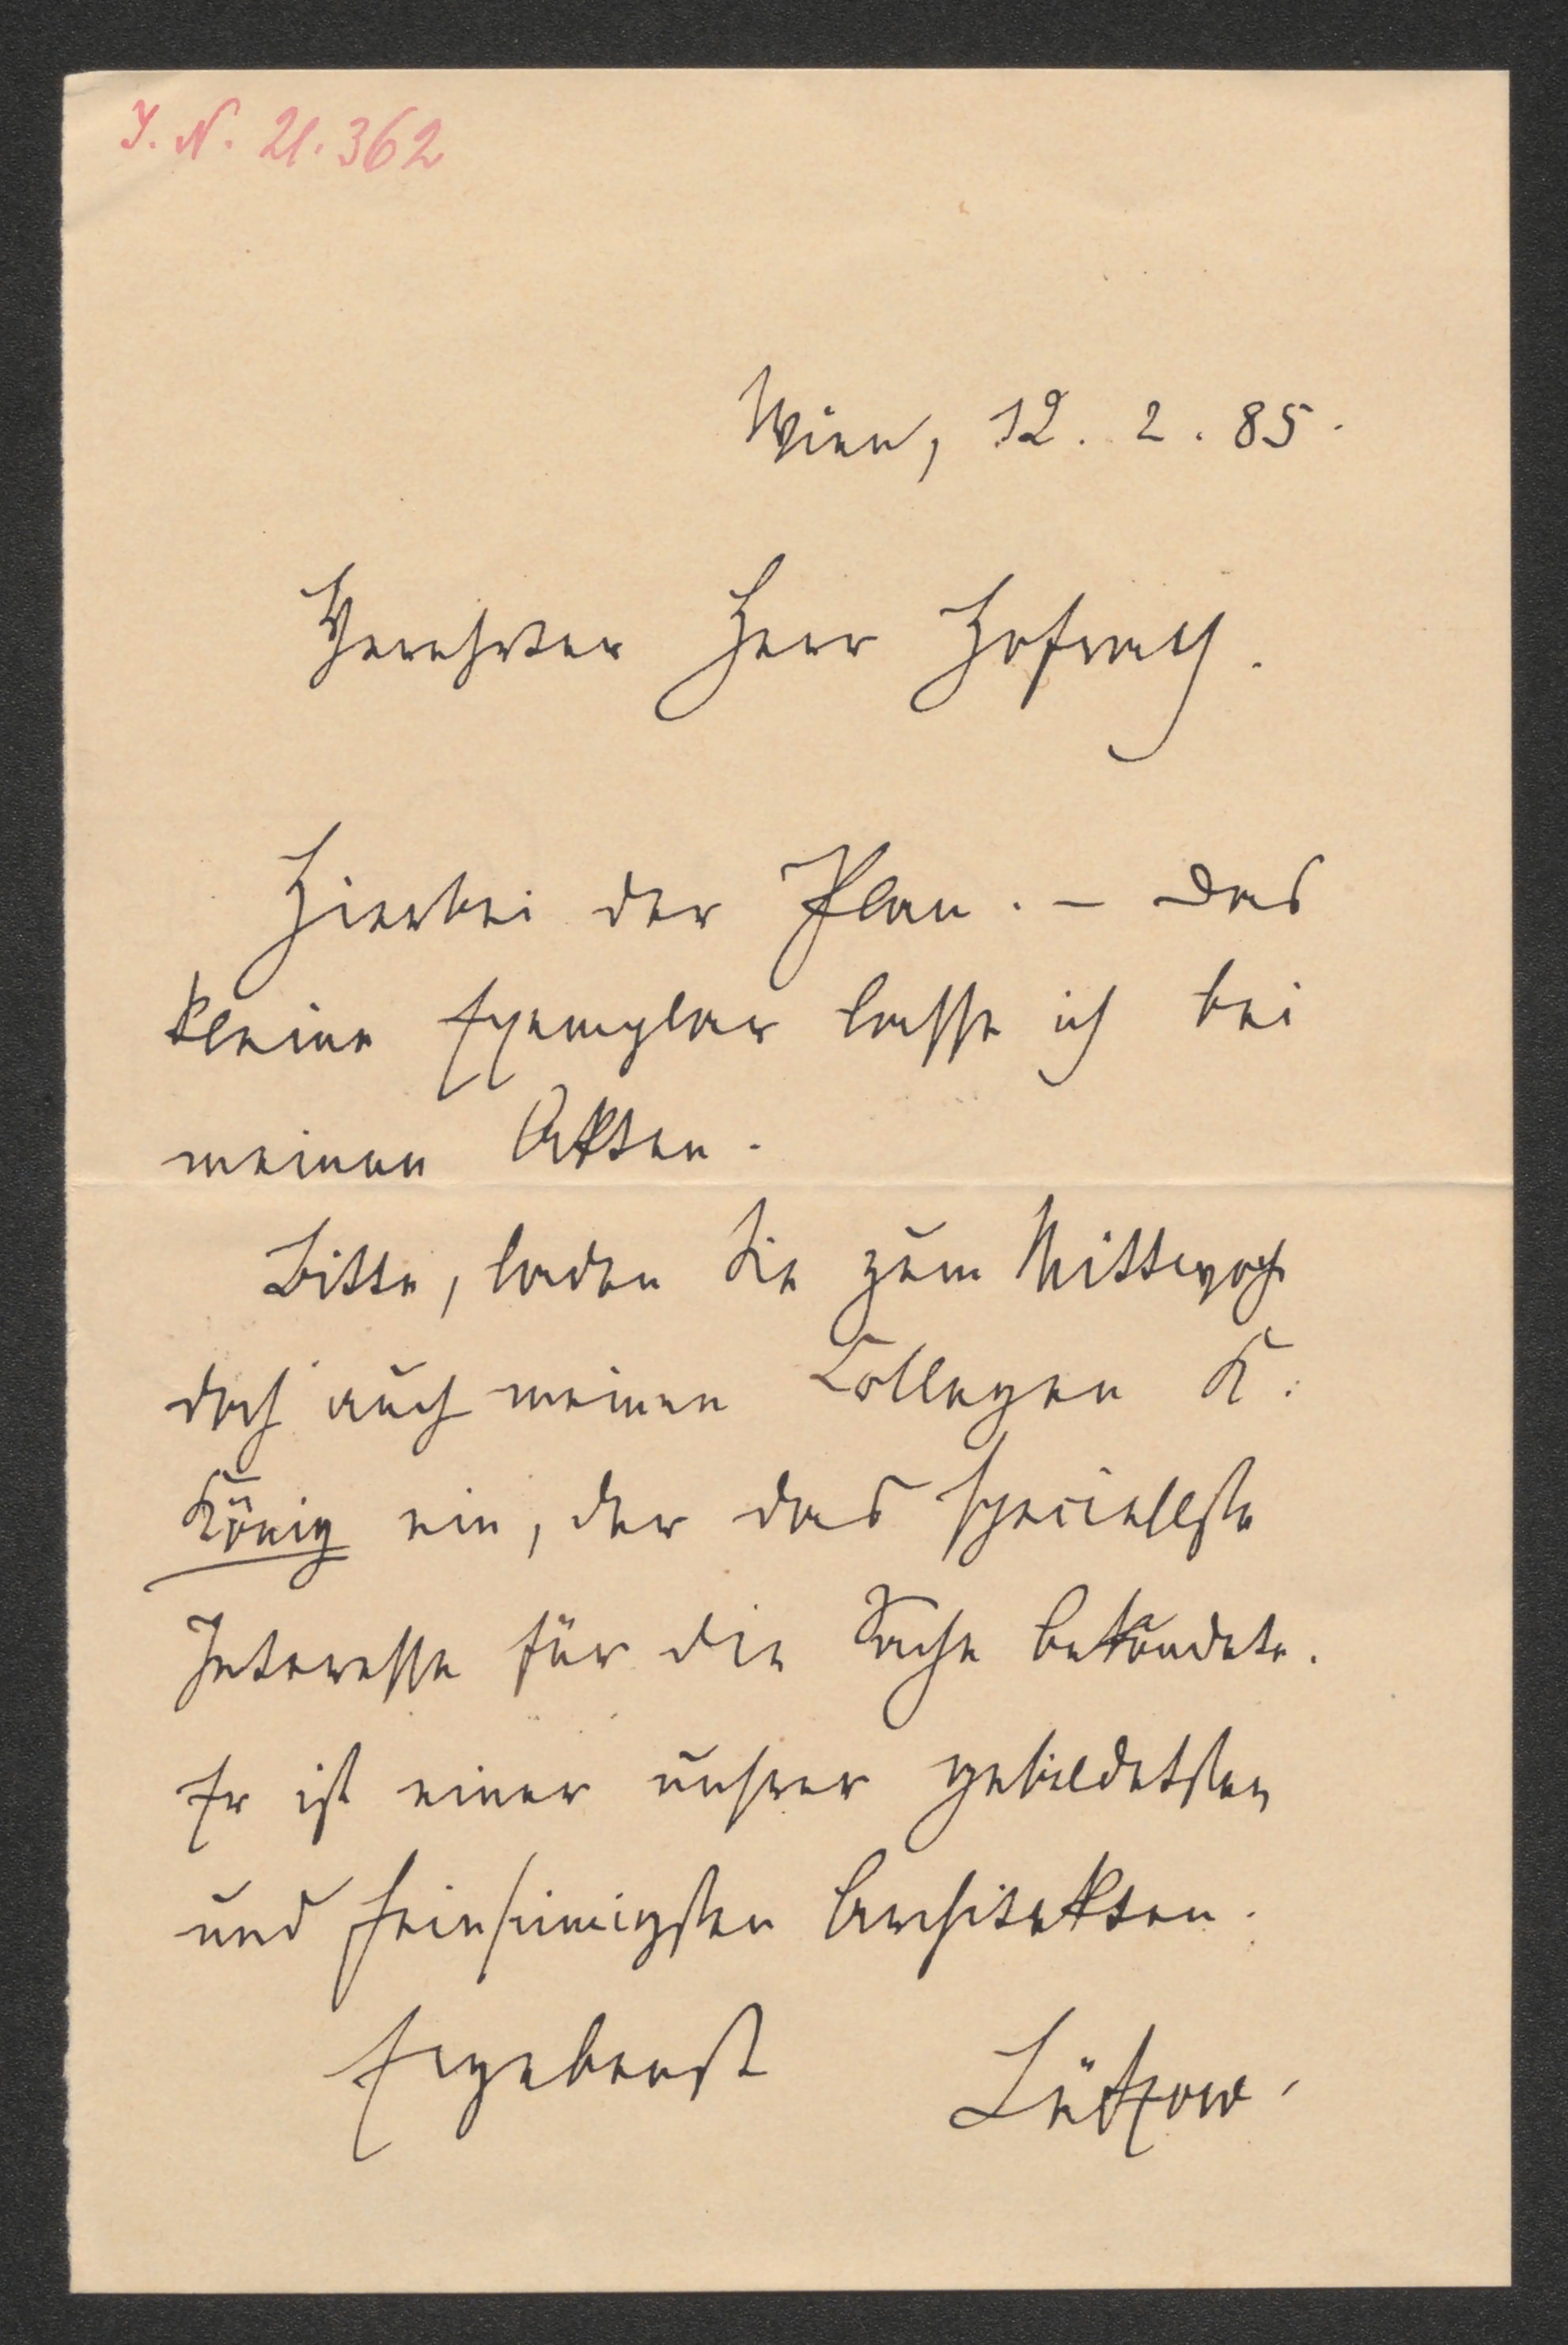 J. N. 21.362
Wien, 12. 2. 85.
Verehrter Herr Hofrath.
Hierbei der Plan. – Das
kleine Exemplar lasse ich bei
meinen Akten.
Bitte, laden Sie zum Mittwoch
doch auch meinen Collegen K.
König ein, der das speciellste
Interesse für die Sache bekundete.
Er ist einer unsrer gebildetsten
und feinsinnigsten Architekten.
Ergebenst Lützow.